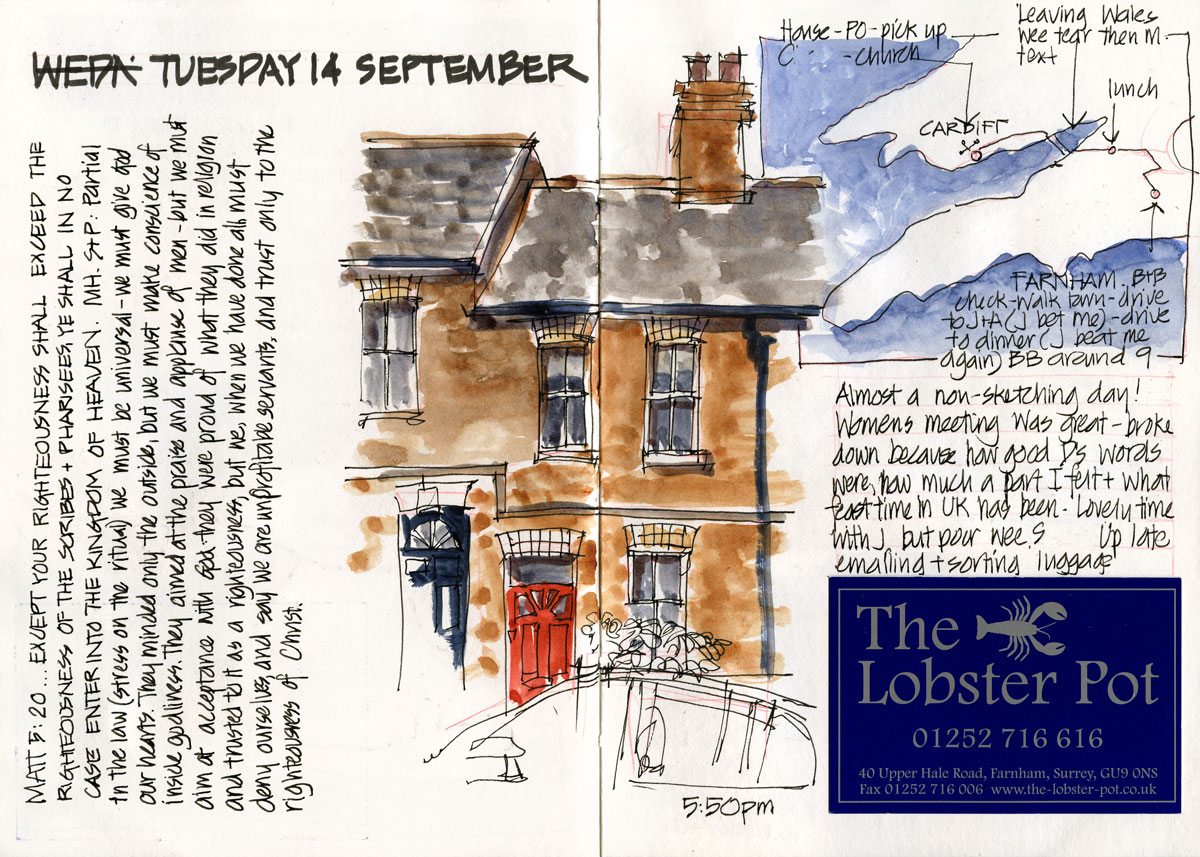 WEDN TUESDAY 14 SEPTEMBER
MATT 5:20 ... EXCEPT YOUR RIGHTEOUSNESS SHALL EXCEED THE
RIGHTEOUSNESS OF THE SCRIBES + PHARISEES, YE SHALL IN NO
CASE ENTER INTO THE KINGDOM OF HEAVEN. MH. S+P: Partial
in the law (stress on the ritual) we must be universal - we must give God
our hearts. They minded only the outside, but we must make conscience of
inside godliness. They aimed at the praise and applause of men - but we must
aim at acceptance with God. they were proud of what they did in religion
and trusted to it as a righteousness, but we, when we have done all, must
deny ourselves, and say we are unprofitable servants, and trust only to the
righteousness of Christ.
House - PO - pick up
C - church
Leaving Wales
wee tear then M
text
lunch
CARDIFF
FARNHAM. B+B
check - walk town - drive
to J+A (J bet me) - drive
to dinner (J beat me
again) BB around 9
Almost a non-sketching day!
Womens meeting was great - broke
down because how good D's words
were, how much a part I felt + what
time in UK has been - Lovely time
with J but poor wee S Up late
emailing + sorting luggage
The
Lobster Pot
01252 716 616
40 Upper Hale Road, Farnham, Surrey, GU9 0NS
Fax 01252 716 006 www.the-lobster-pot.co.uk
5:50pm